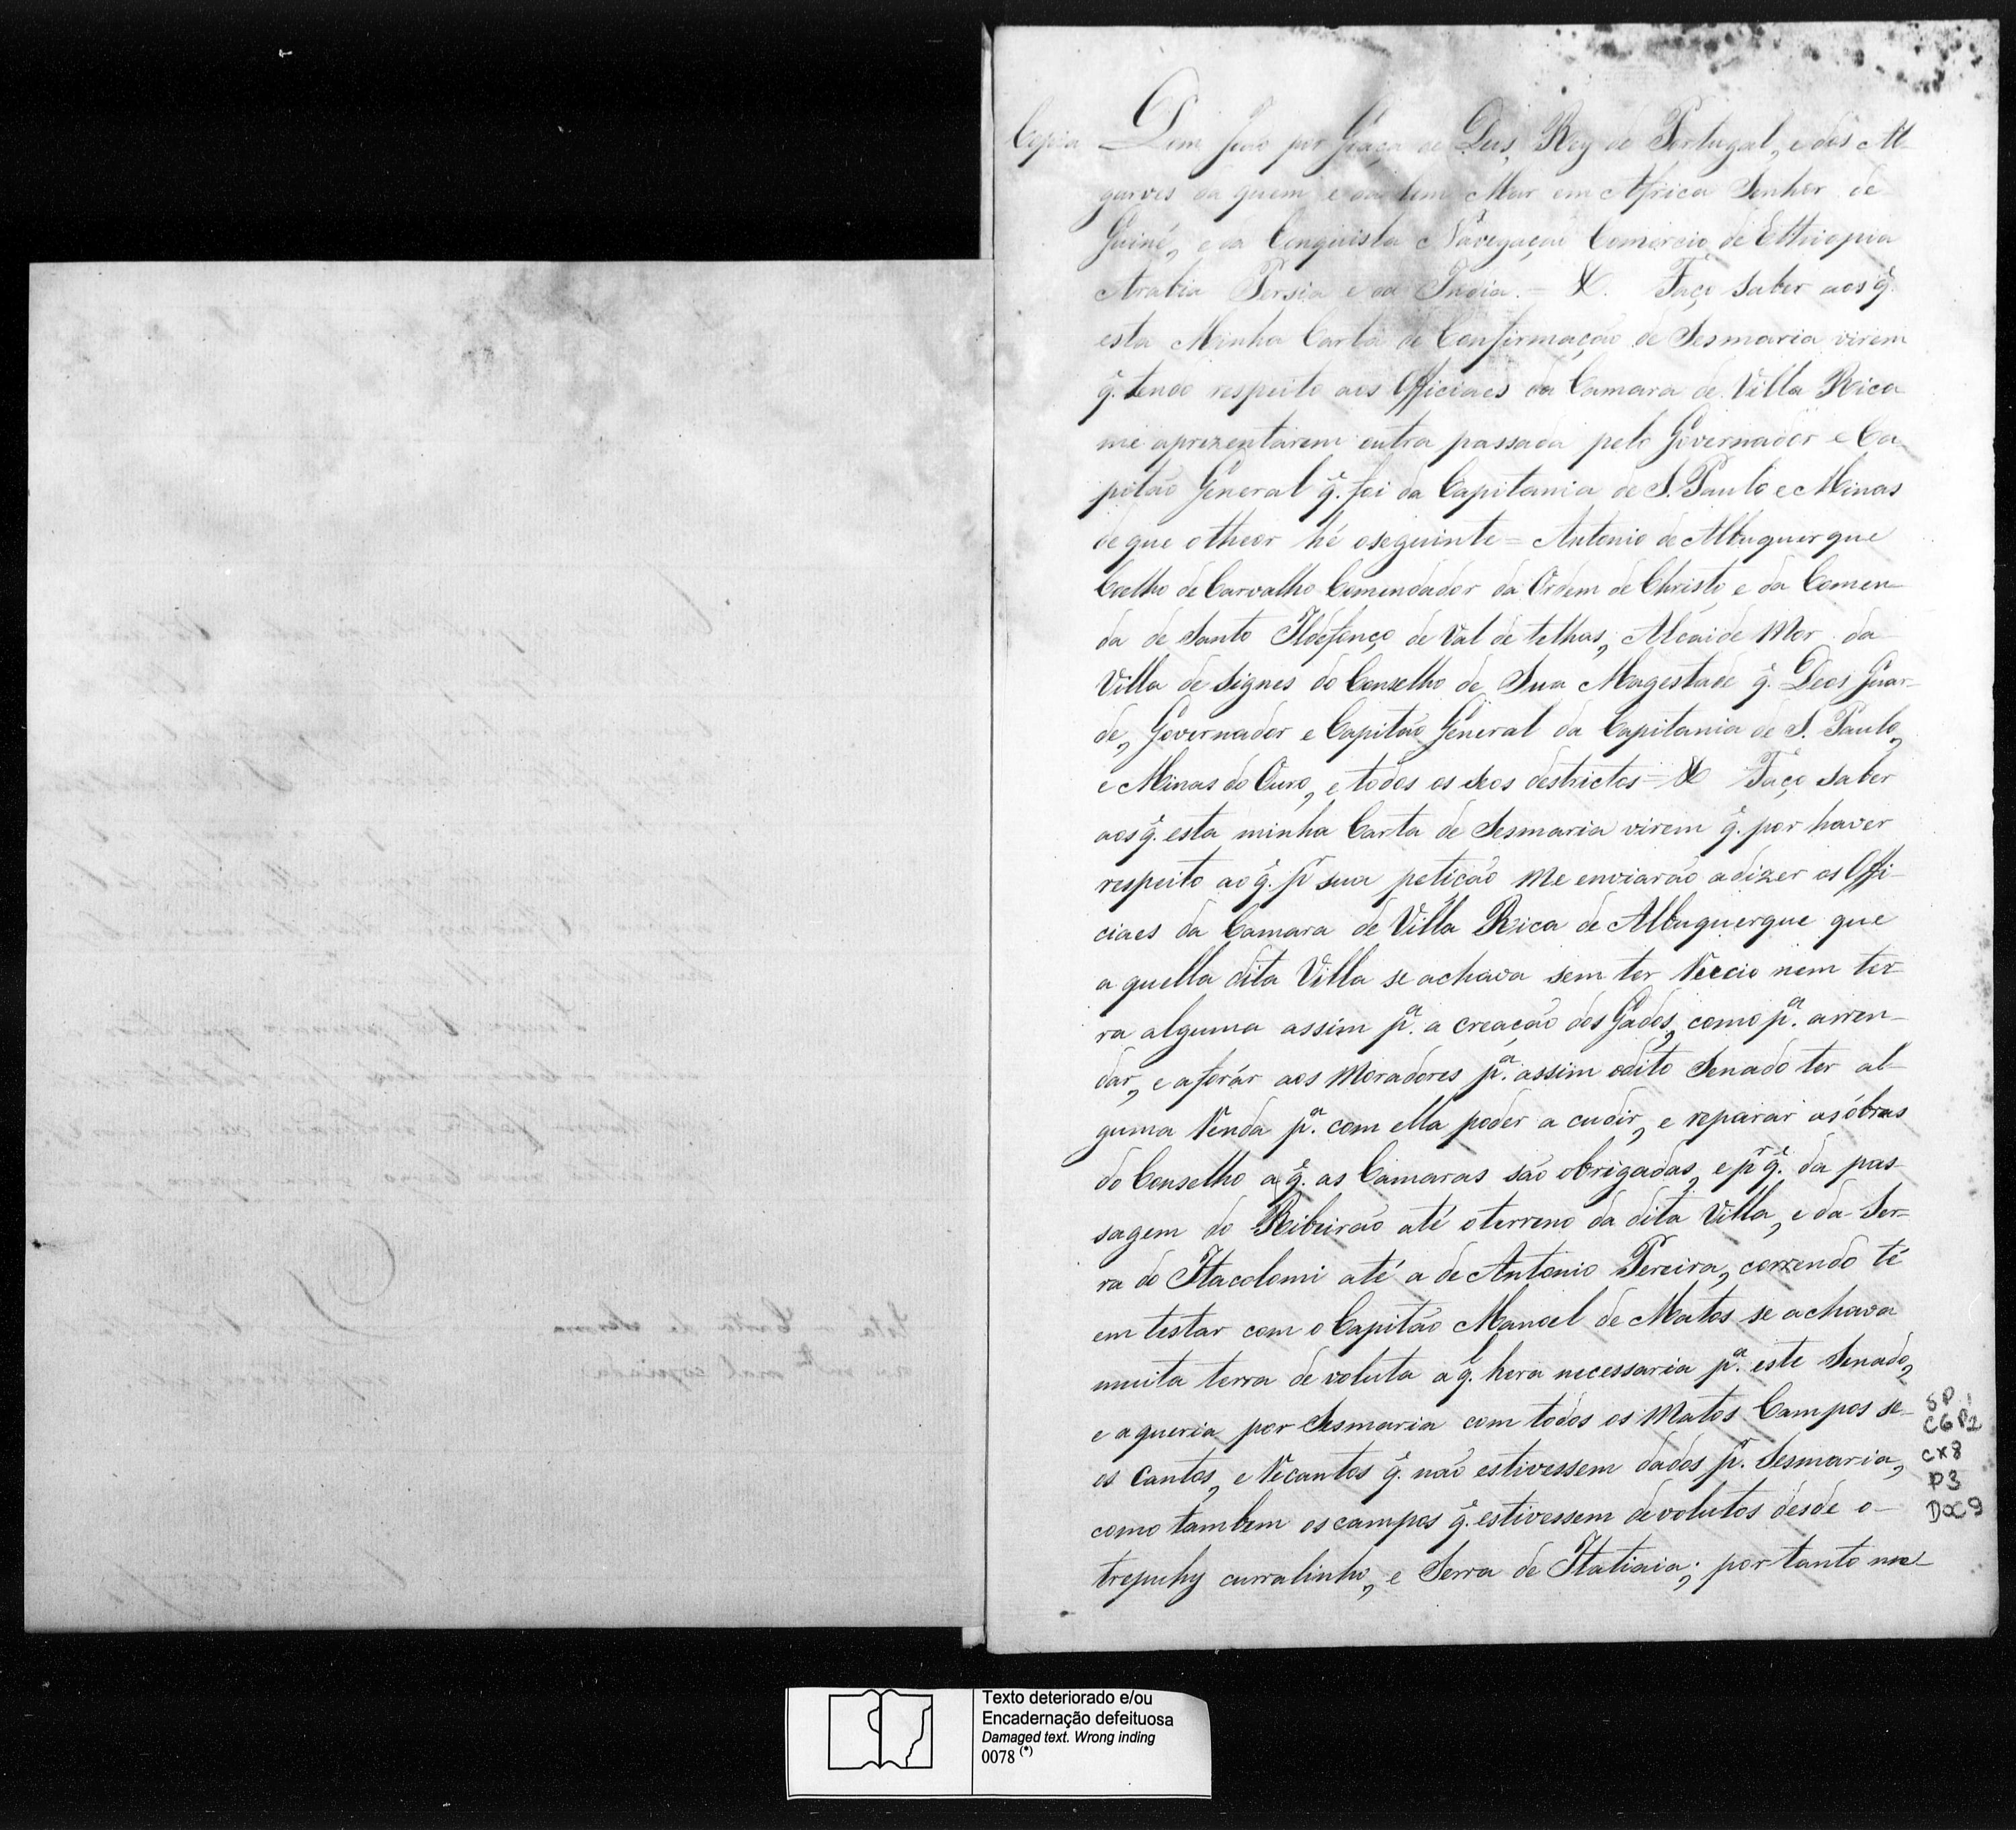 Copia Dom João por Graça de Deus, Rey de Portugal, e dos Al-
garves da quem e da lem Mar em Africa Senhor de
Guiné, e da Conquista Navegação Comercio de Ethiopia
Arabia Persia e da India. = &. Faço saber aos q̃.
esta Minha Carta de Confirmação de Sesmaria virem
q̃. tendo respeito aos Officiaes da Camara de Villa Rica
me aprezentarem outra passada pelo Governador e Ca-
pitão General q̃. foi da Capitania de S. Paulo e Minas
de que otheor hé oseguinte = Antonio de Albuquerque
Coelho de Carvalho Comendador da Ordem de Christo, e da Comen-
da de Santo Ildefonço de Val de telhas, Alcaide Mor da
Villa de Signes do Conselho de Sua Magestade q̃. Deos Guar-
de, Governador e Capitão General da Capitania de S. Paulo,
e Minas do Ouro, e todos os seos destrictos = & Faço saber
aos q̃. esta minha Carta de Sesmaria virem q̃. por haver
respeito ao q̃. pr sua petição Me enviarão adizer os Offi-
ciaes da Camara de Villa Rica de Albuquerque que
a quella dita Villa se achava sem ter Reccio nem ter-
ra alguma assim pa. a creação dos Gados, como pa. arren-
dar, e aforár aos Moradores pa. assim odito Senado ter al-
guma Renda pa. com ella poder a cudir, e reparar asóbras
do Conselho a q̃. as Camaras são obrigadas, e pr q̃. da pas-
sagem do Ribeirão até oterreno da dita Villa, e da Ser=
ra do Itacolomi até a de Antonio Pereira, correndo té
em testar com o Capitão Manoel de Matos se achava
muita terra de voluta a q̃. hera necessaria pa. este Senado,
e aqueria por Sesmaria com todos os Matos Campos se-
os Cantos, e Recantos q̃. não estivessem dados pr. Sesmaria,
como tambem oscampos q̃. estivessem devolutos desde o-
trepuhy curralinho, e Serra de Itatiaia; por tanto me
SP
CGP1
CX8
P3
DOC9
Texto deteriorado e/ou
Encadernação defeituosa
Damaged text. Wrong inding
0078 (*)